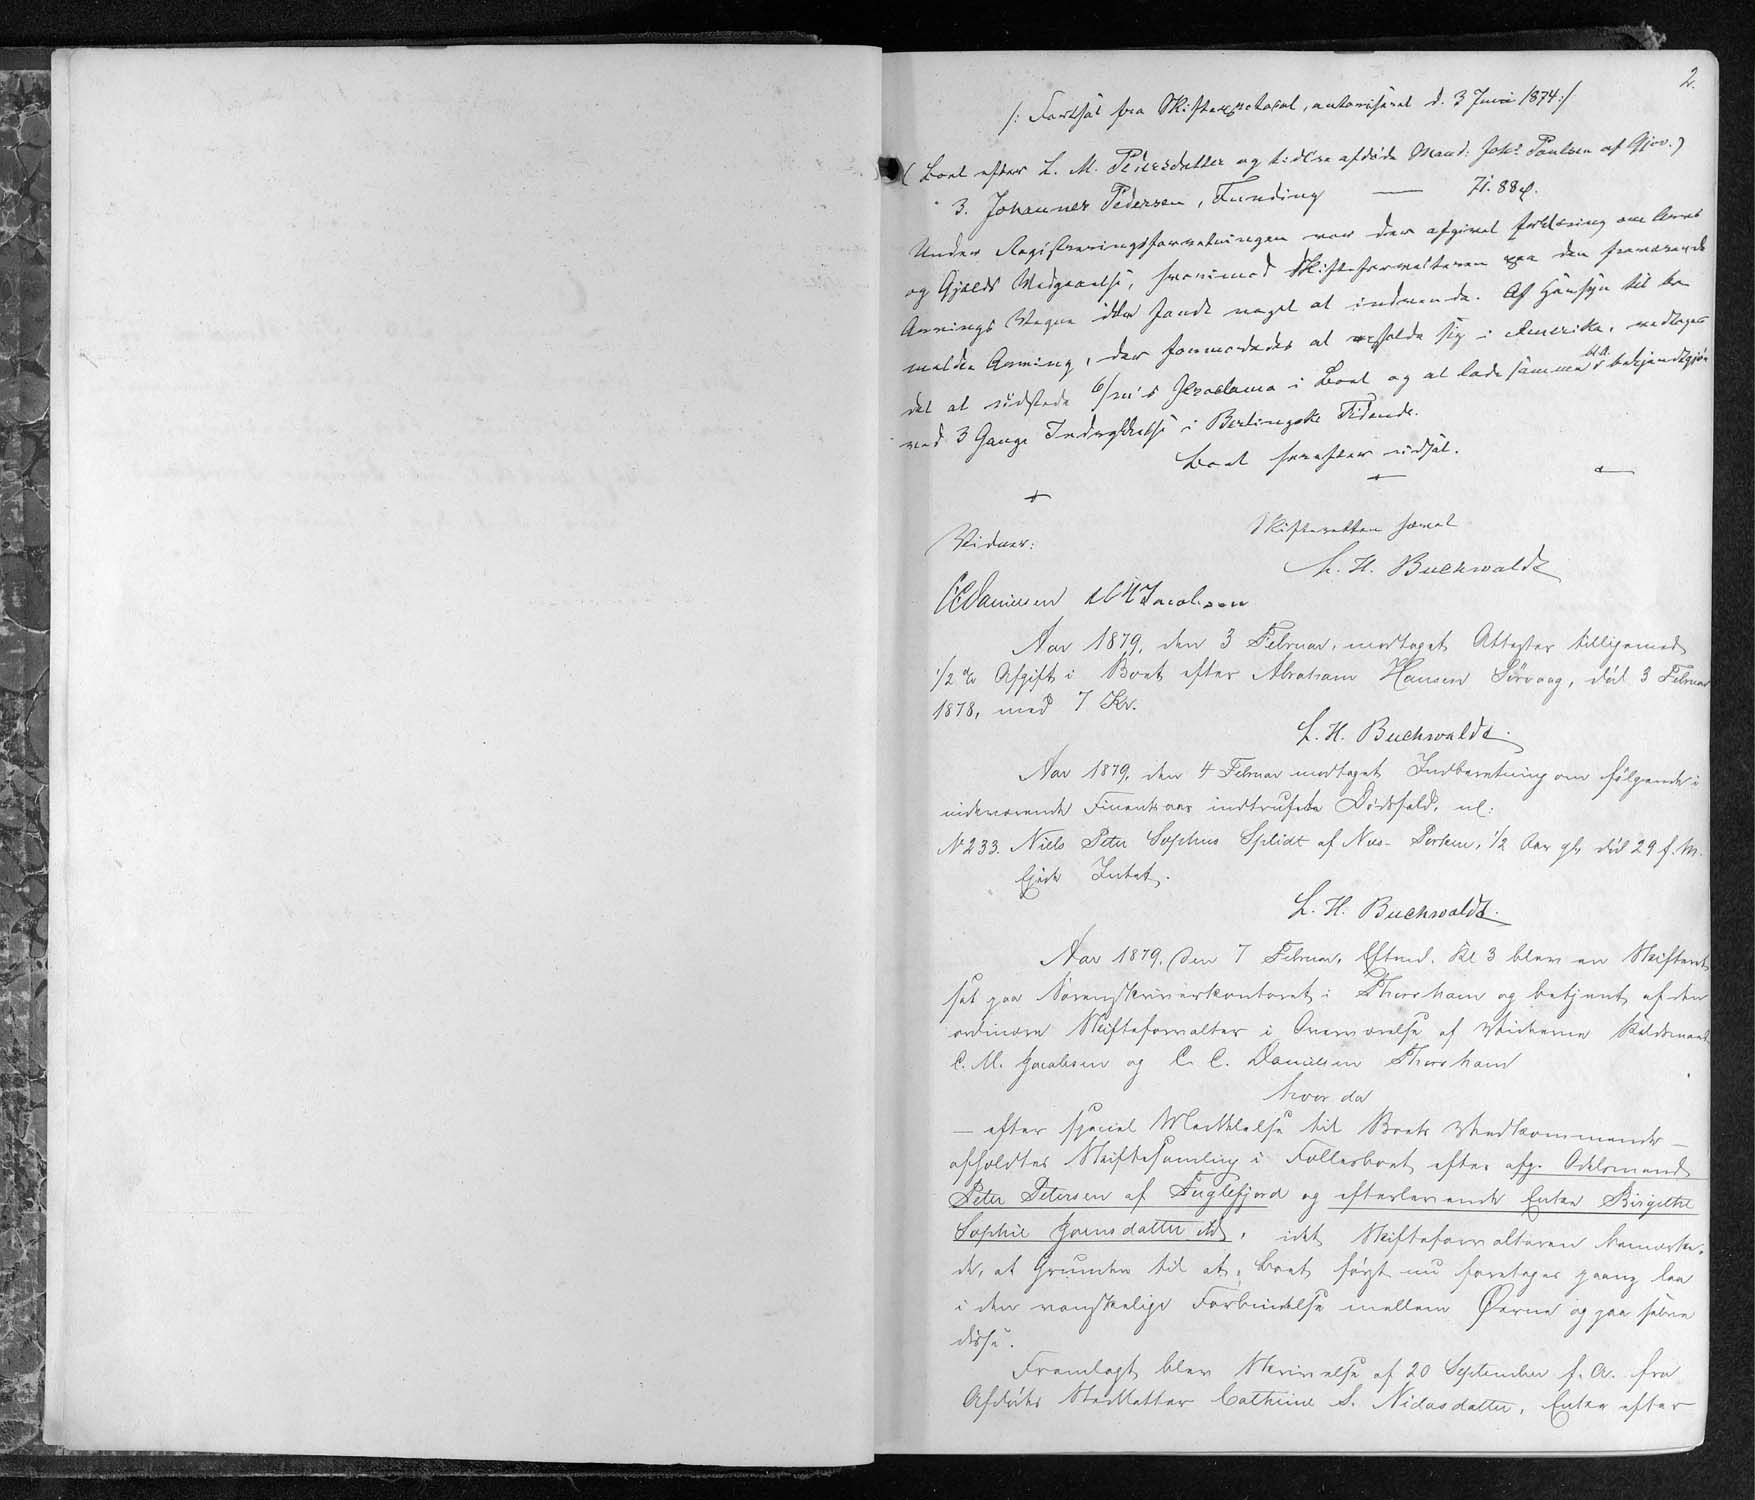 2.
/: Fortsat fra Skifteprotocol, autoriseret d. 3 Juni 1874 :/
( Boet efter L. M. Peiersdatter og tidlre afdøde Mand: Johs Poulsen af Gjov. )
3. Johannes Pedersen, Funding — 71. 88
Under Registreringsforretningen var der afgivet Erklæring om Arvs
og Gjælds Vedgaaelse, hvorimod Skifteforvalteren paa den fraværende
Arvings Vegne ikke fandt noget at indvende. Af Hensyn til be
meldte Arving, der formodedes at opholde sig i Amerika, vedtoges
det at udstede 6/m's Proclama i Boet og at lade samme bl. A. bekjendtgjøre
ved 3 Gange Indrykkelse i Berlingske Tidende.
Boet herefter udsat.
Skifteretten hævet
Vidner:
L. H. Buchwaldt
CC Danielsen Jacobsen
Aar 1879, den 3 Februar, modtaget Attester tilligemed
1/2 % Afgift i Boet efter Abraham Hansen Sørvaag, død 3 Februar
1878, med 7 Kr.
L. H. Buchwaldt.
Aar 1879, den 4 Februar modtaget Indberetning om følgende i
indeværende Finantsaar indtrufne Dødsfald, nl:
No 233. Niels Peter Sophus Splidt af Næs - 1/2 Aar gl. død 29 f. M.
Ejede Intet.
L. H. Buchwaldt.
Aar 1879, den 7 Februar, Eftmd. Kl 3 blev en Skifteret
sat paa Sorenskriverkontoret i Thorshavn og betjent af den
ordinære Skifteforvalter i Overværelse af Vidnerne
C. M. Jacobsen og C. C. Danielsen Thorshavn
hvor da
— efter special Meddelelse til Boets Vedkommende —
afholdtes Skiftesamling i Fællesboet efter afg. Odelsmand
Peter Petersen af Fuglefjord og efterlevende Enke Birgithe
Sophie Joensdatter ibd, idet Skifteforvalteren bemærke-
de, at Grunden til at Boet først nu foretages paany laa
i den vanskelige Forbindelse mellem Øerne og paa selve
disse.
Fremlagt blev Skrivelse af 20 September f. A. fra
Afdødes Steddatter Cathrine S. Niclasdatter, Enke efter